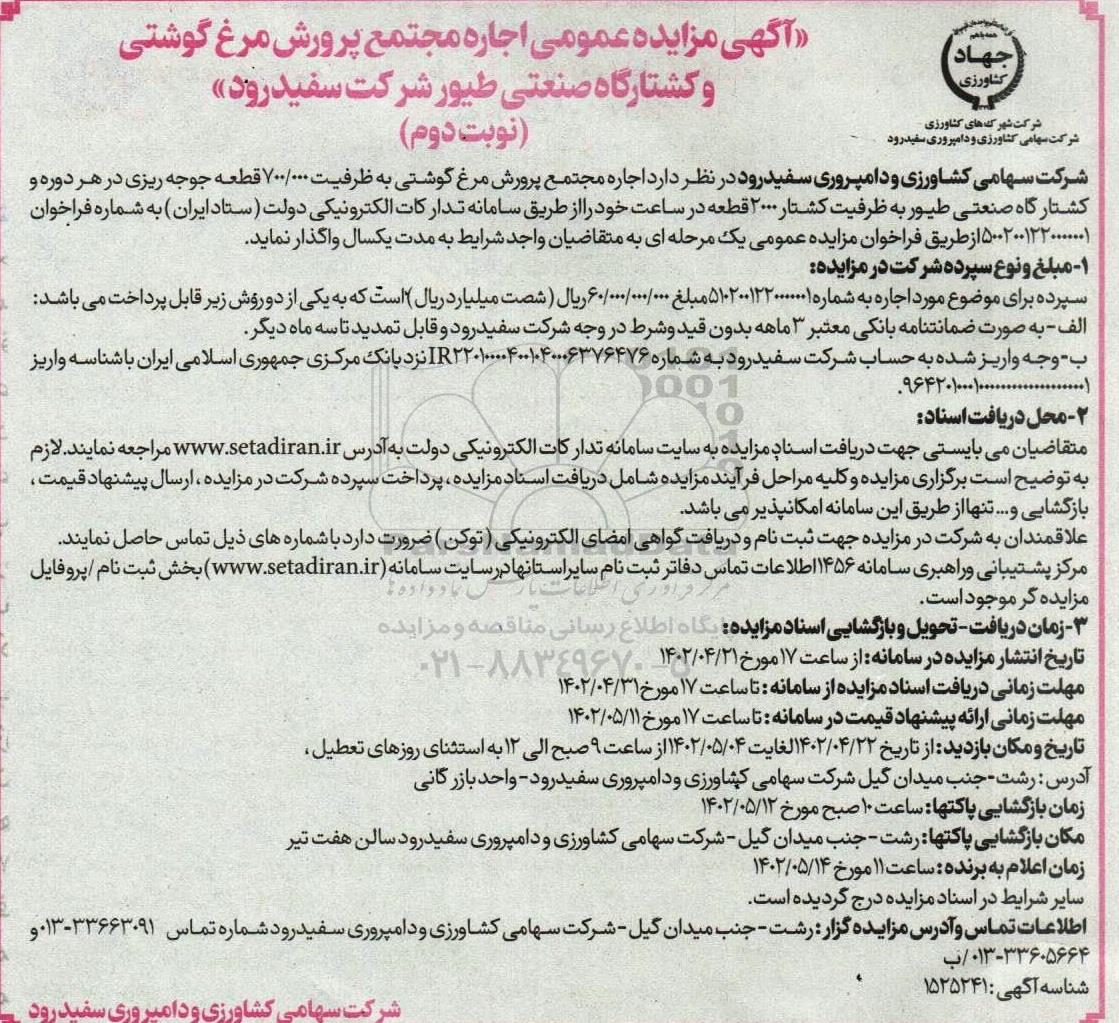 «آگهی مزایده عمومی اجاره مجتمع پرورش مرغ گوشتی
و کشتارگاه صنعتی طیور شرکت سفیدرود»
(نوبت دوم)
همه با هم
جهاد
کشاورزی
شرکت شهرک های کشاورزی
شرکت سهامی کشاورزی و دامپروری سفیدرود
شرکت سهامی کشاورزی و دامپروری سفیدرود در نظر دارد اجاره مجتمع پرورش مرغ گوشتی به ظرفیت ۷۰۰/۰۰۰ قطعه جوجه ریزی در هر دوره و
کشتار گاه صنعتی طیور به ظرفیت کشتار ۲۰۰۰ قطعه در ساعت خود را از طریق سامانه تدارکات الکترونیکی دولت (ستاد ایران) به شماره فراخوان
۵۰۰۲۰۰۱۲۲۰۰۰۰۰۰۱ از طریق فراخوان مزایده عمومی یک مرحله ای به متقاضیان واجد شرایط به مدت یکسال واگذار نماید.
۱- مبلغ و نوع سپرده شرکت در مزایده:
سپرده برای موضوع مورد اجاره به شماره ۵۱۰۲۰۰۱۲۲۰۰۰۰۰۰۱ مبلغ ۶۰/۰۰۰/۰۰۰/۰۰۰ ریال (شصت میلیارد ریال) است که به یکی از دو روش زیر قابل پرداخت می باشد:
الف- به صورت ضمانتنامه بانکی معتبر ۳ ماهه بدون قید و شرط در وجه شرکت سفیدرود و قابل تمدید تا سه ماه دیگر.
ب- وجه واریز شده به حساب شرکت سفیدرود به شماره IR۲۲۰۱۰۰۰۰۴۰۰۱۰۴۰۰۰۶۳۷۶۴۷۶ نزد بانک مرکزی جمهوری اسلامی ایران با شناسه واریز
۲- محل دریافت اسناد:
متقاضیان می بایستی جهت دریافت اسناد مزایده به سایت سامانه تدارکات الکترونیکی دولت به آدرس www.setadiran.ir مراجعه نمایند. لازم
به توضیح است برگزاری مزایده و کلیه مراحل فرآیند مزایده شامل دریافت اسناد مزایده، پرداخت سپرده شرکت در مزایده، ارسال پیشنهاد قیمت،
بازگشایی و... تنها از طریق این سامانه امکانپذیر می باشد.
علاقمندان به شرکت در مزایده جهت ثبت نام و دریافت گواهی امضای الکترونیکی (توکن) ضرورت دارد با شماره های ذیل تماس حاصل نمایند.
مرکز پشتیبانی و راهبری سامانه ۱۴۵۶ اطلاعات تماس دفاتر ثبت نام سایر استانها در سایت سامانه (www.setadiran.ir) بخش ثبت نام/پروفایل
مزایده گر موجود است.
۳- زمان دریافت- تحویل و بازگشایی اسناد مزایده:
تاریخ انتشار مزایده در سامانه: از ساعت ۱۷ مورخ ۱۴۰۲/۰۴/۲۱
مهلت زمانی دریافت اسناد مزایده از سامانه: تا ساعت ۱۷ مورخ ۱۴۰۲/۰۴/۳۱
مهلت زمانی ارائه پیشنهاد قیمت در سامانه: تا ساعت ۱۷ مورخ ۱۴۰۲/۰۵/۱۱
تاریخ و مکان بازدید: از تاریخ ۱۴۰۲/۰۴/۲۲ لغایت ۱۴۰۲/۰۵/۰۴ از ساعت ۹ صبح الی ۱۲ به استثنای روزهای تعطیل،
آدرس: رشت- جنب میدان گیل شرکت سهامی کشاورزی و دامپروری سفیدرود- واحد بازرگانی
زمان بازگشایی پاکتها: ساعت ۱۰ صبح مورخ ۱۴۰۲/۰۵/۱۲
مکان بازگشایی پاکتها: رشت- جنب میدان گیل- شرکت سهامی کشاورزی و دامپروری سفیدرود سالن هفت تیر
زمان اعلام به برنده: ساعت ۱۱ مورخ ۱۴۰۲/۰۵/۱۴
سایر شرایط در اسناد مزایده درج گردیده است.
اطلاعات تماس و آدرس مزایده گزار: رشت- جنب میدان گیل- شرکت سهامی کشاورزی و دامپروری سفیدرود شماره تماس ۰۱۳-۳۳۶۶۳۰۹۱ و
۰۱۳-۳۳۶۰۵۶۶۴/ب
شناسه آگهی: ۱۵۲۵۲۴۱
شرکت سهامی کشاورزی و دامپروری سفیدرود
ParsNamadData
مرکز فرآوری اطلاعات پارس نماد داده ها
پایگاه اطلاع رسانی مناقصه و مزایده
۰۲۱-۸۸۳۴۹۶۷۰-۵